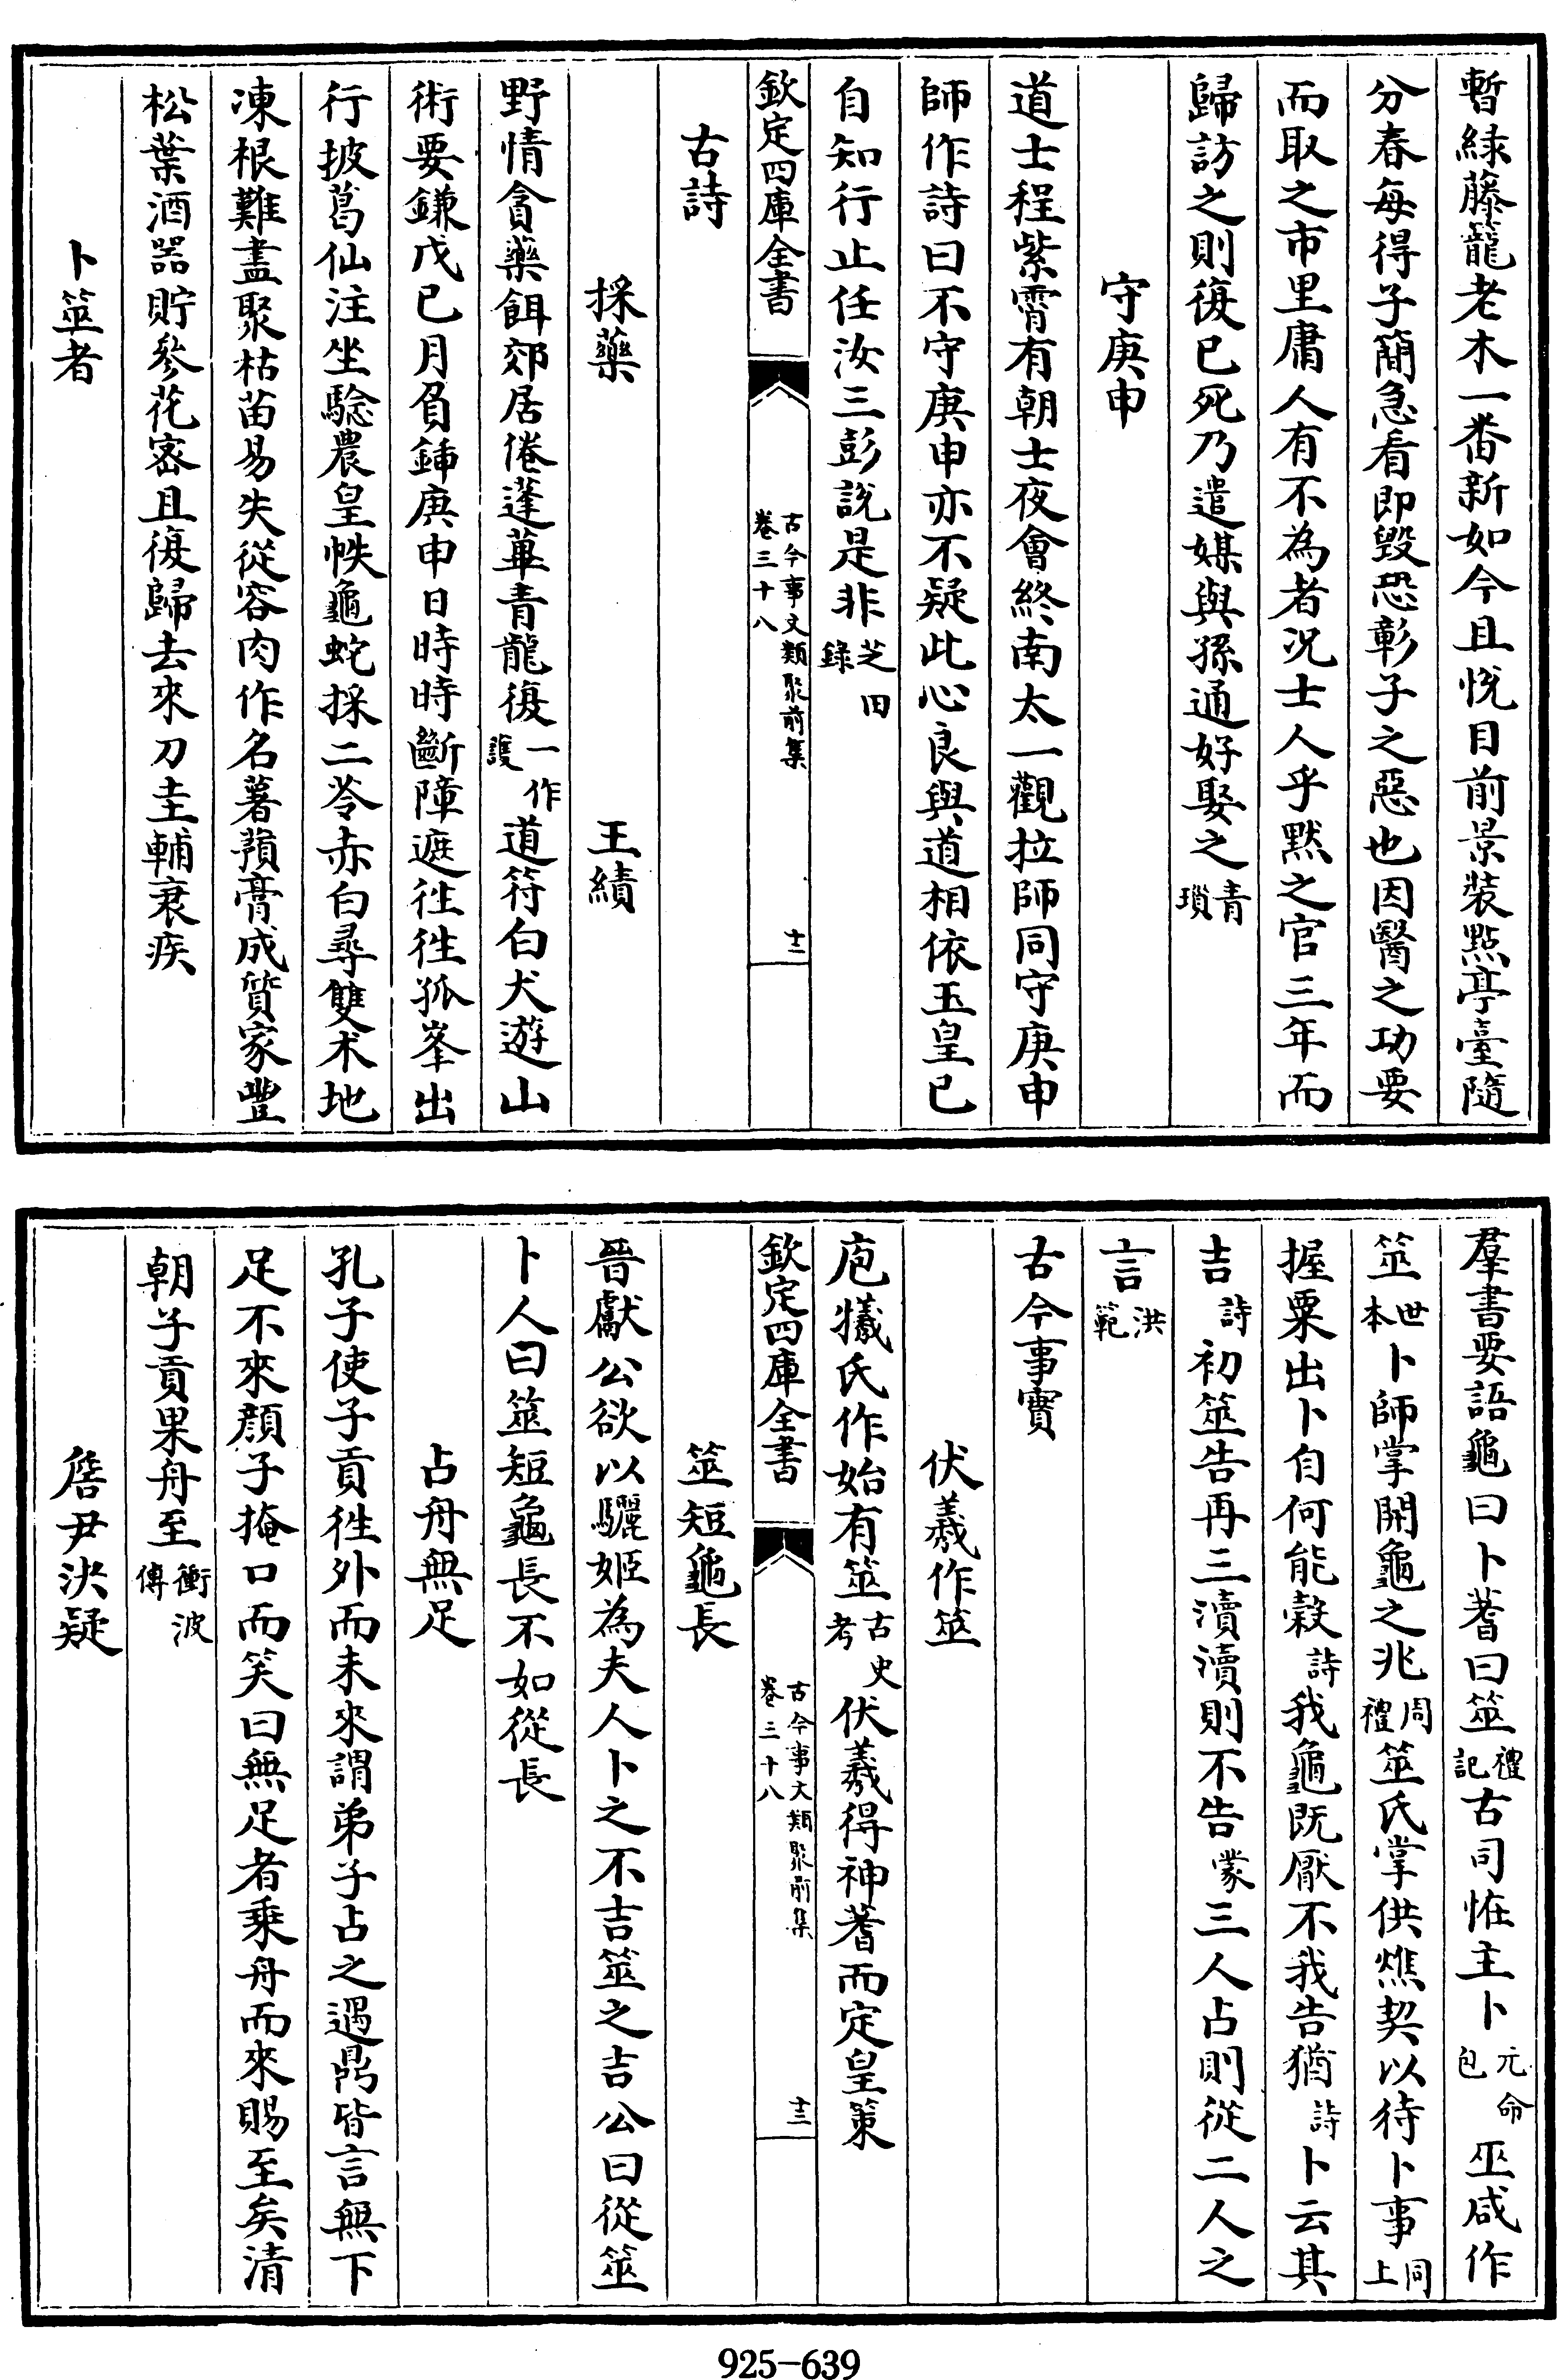 暫緑藤籠老木一番新如今且恱目前景装㸃亭臺隨
分春每得子簡急看即毁恐彰子之惡也因醫之功要
而取之市里庸人有不為者况士人乎黙之官三年而
歸訪之則復已死乃遣媒與孫通好娶之青瑣
守庚申
道士程紫霄有朝士夜會終南太一觀拉師同守庚申
師作詩曰不守庚申亦不疑此心良與道相依玉皇已
自知行止任汝三彭說是非芝田録
欽定四庫全書 古今事文類聚前集卷三十八 十二
古詩
採藥 王績
野情貪藥餌郊居倦蓬蓽青龍復一作護道符白犬遊山
術要鎌戊已月負鍤庚申日時時斷障遮徃徃孤峯出
行披葛仙注坐騐農皇帙龜蛇採二苓赤白尋雙术地
凍根難盡聚枯苗易失從容肉作名薯蕷膏成質家豐
松葉酒器貯參花宻且復歸去來刀圭輔衰疾
卜筮者
羣書要語龜曰卜蓍曰筮禮記古司恠主卜元命包巫咸作
筮世本卜師掌開龜之兆周禮筮氏掌供燋契以待卜事同上
握粟出卜自何能榖詩我龜既厭不我告猶詩卜云其
吉詩初筮告再三瀆瀆則不告蒙三人占則從二人之
言洪範
古今事實
伏羲作筮
庖犧氏作始有筮古史考伏羲得神蓍而定皇策
欽定四庫全書 古今事文類聚前集卷三十八 十三
筮短龜長
晉獻公欲以驪姬為夫人卜之不吉筮之吉公曰從筮
卜人曰筮短龜長不如從長
占舟無足
孔子使子貢徃外而未來謂弟子占之遇鼎皆言無下
足不來顔子掩口而笑曰無足者乘舟而來賜至矣清
朝子貢果舟至衝波傳
詹尹決疑
925-639